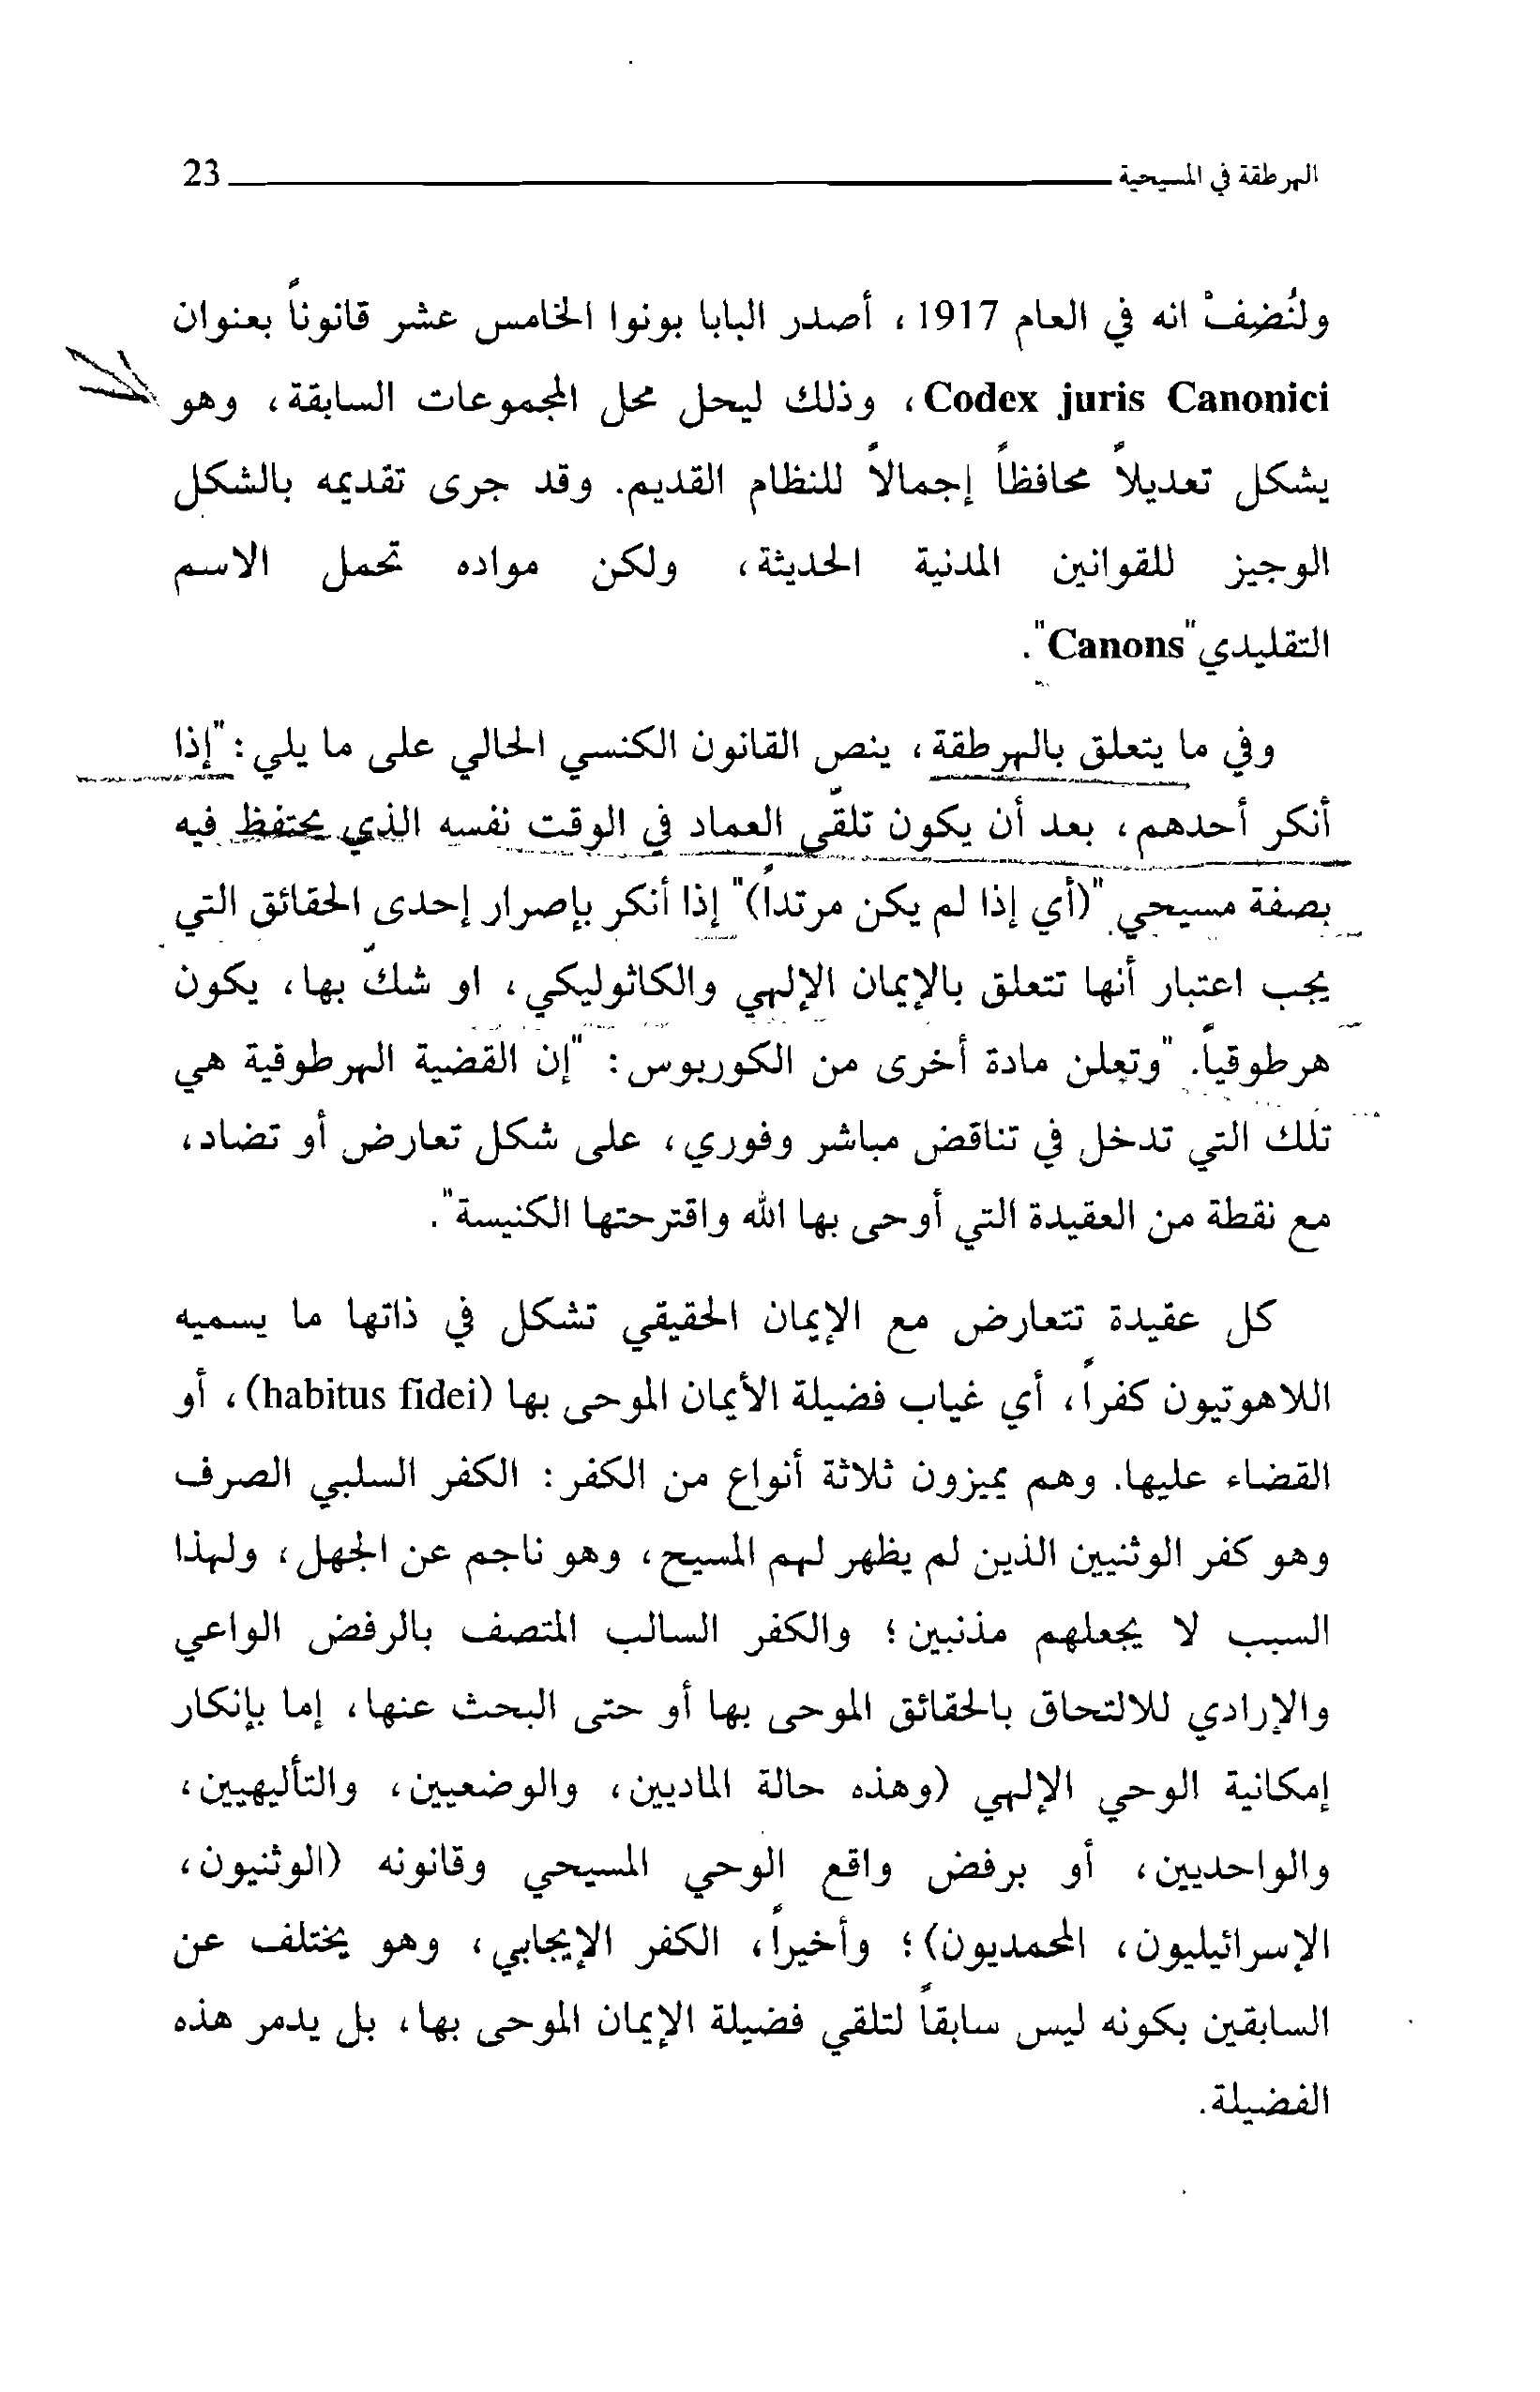 الهرطقة في المسيحية 23
ولنُضِفْ انه في العام 1917، أصدر البابا بونوا الخامس عشر قانوناً بعنوان
Codex juris Canonici، وذلك ليحل محل المجموعات السابقة، وهو
يشكل تعديلاً محافظاً إجمالاً للنظام القديم. وقد جرى تقديمه بالشكل
الوجيز للقوانين المدنية الحديثة، ولكن مواده تحمل الاسم
التقليدي "Canons".
وفي ما يتعلق بالهرطقة، ينص القانون الكنسي الحالي على ما يلي: "إذا
أنكر أحدهم، بعد أن يكون تلقّى العماد في الوقت نفسه الذي يحتفظ فيه
بصفة مسيحي "(أي إذا لم يكن مرتداً)" إذا أنكر بإصرار إحدى الحقائق التي
يجب اعتبار أنها تتعلق بالإيمان الإلهي والكاثوليكي، او شكّ بها، يكون
هرطوقياً. "وتعلن مادة أخرى من الكوربوس: "إن القضية الهرطوقية هي
تلك التي تدخل في تناقض مباشر وفوري، على شكل تعارض أو تضاد،
مع نقطة من العقيدة التي أوحى بها الله واقترحتها الكنيسة".
كل عقيدة تتعارض مع الإيمان الحقيقي تشكل في ذاتها ما يسميه
اللاهوتيون كفراً، أي غياب فضيلة الأيمان الموحى بها (habitus fidei)، أو
القضاء عليها. وهم يميزون ثلاثة أنواع من الكفر: الكفر السلبي الصرف
وهو كفر الوثنيين الذين لم يظهر لهم المسيح، وهو ناجم عن الجهل، ولهذا
السبب لا يجعلهم مذنبين؛ والكفر السالب المتصف بالرفض الواعي
والإرادي للالتحاق بالحقائق الموحى بها أو حتى البحث عنها، إما بإنكار
إمكانية الوحي الإلهي (وهذه حالة الماديين، والوضعيين، والتأليهيين،
والواحديين، أو برفض واقع الوحي المسيحي وقانونه (الوثنيون،
الإسرائيليون، المحمديون)؛ وأخيراً، الكفر الإيجابي، وهو يختلف عن
السابقين بكونه ليس سابقاً لتلقي فضيلة الإيمان الموحى بها، بل يدمر هذه
الفضيلة.